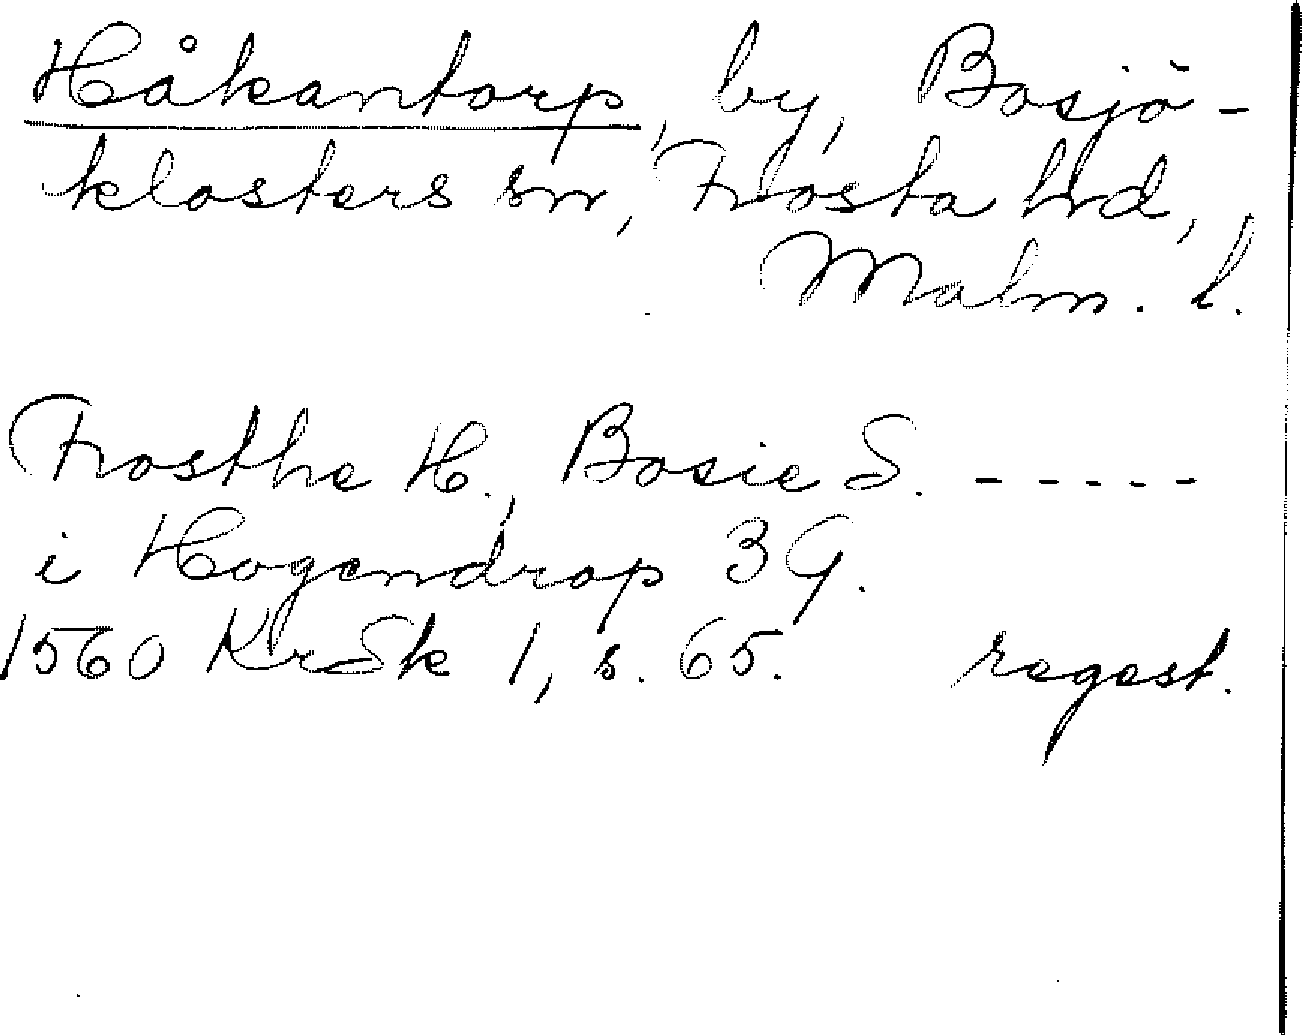 Håkantorp, by, Bosjö-
klosters sn, Frosta hrd,
Malm. l.
Frosthe H., Bosie S. - - - - -
i Hogendrop 3 G.
1560 KrSk 1, s. 65. regest.